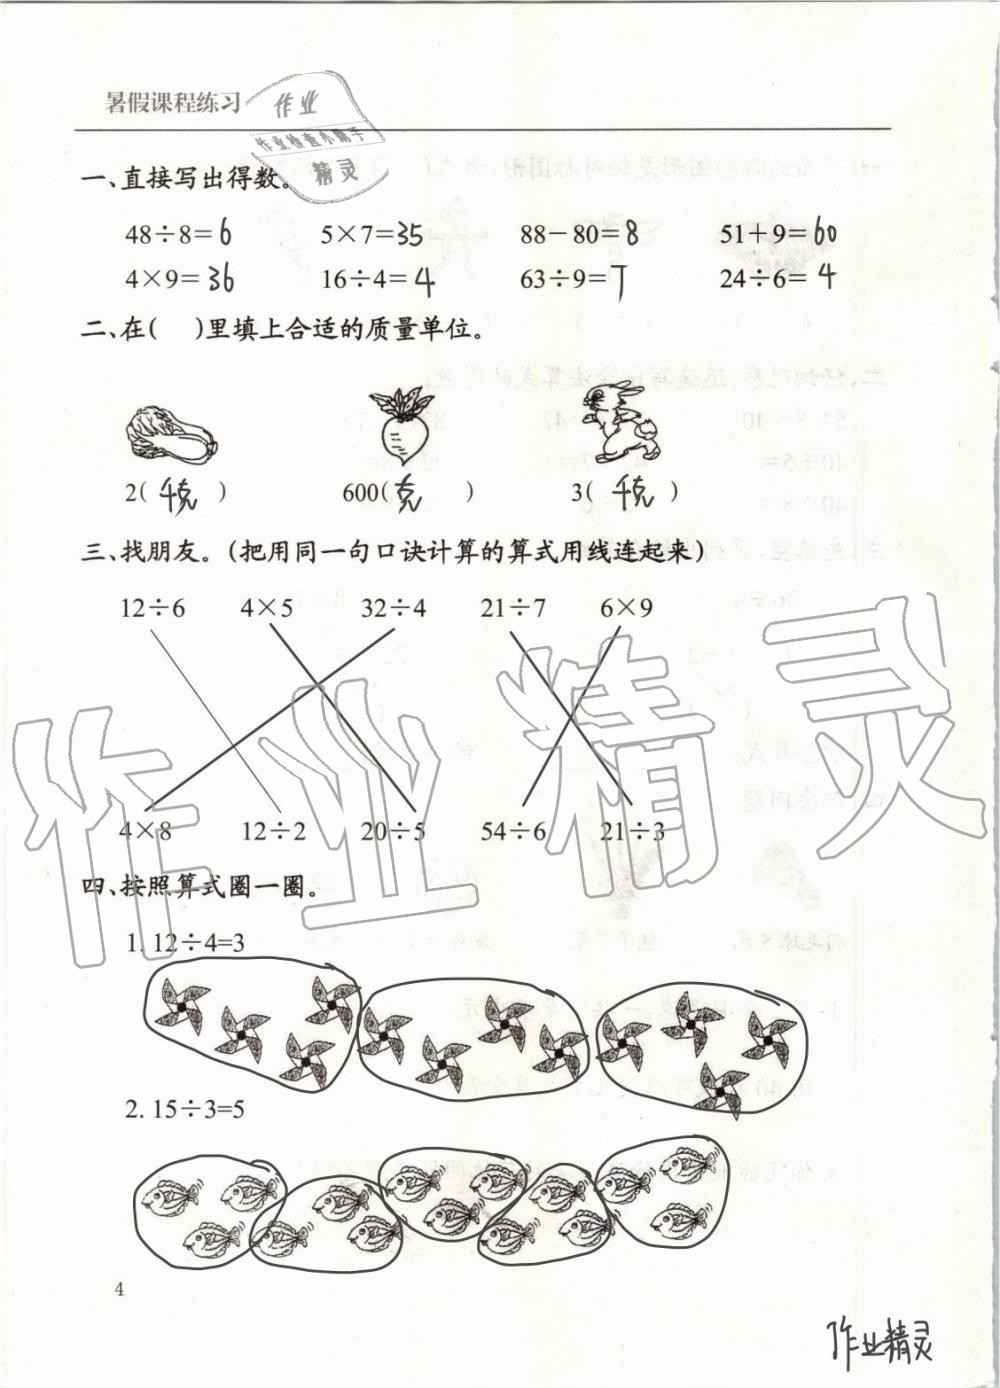 暑假课程练习
作业
作业检查小帮手
精灵
一、直接写出得数。
48÷8=6 5×7=35 88-80=8 51+9=60
4×9=36 16÷4=4 63÷9=7 24÷6=4
二、在( )里填上合适的质量单位。
2(千克) 600(克) 3(千克)
三、找朋友。(把用同一句口诀计算的算式用线连起来)
12÷6 4×5 32÷4 21÷7 6×9
4×8 12÷2 20÷5 54÷6 21÷3
作业精灵
四、按照算式圈一圈。
1. 12÷4=3
2. 15÷3=5
4
作业精灵